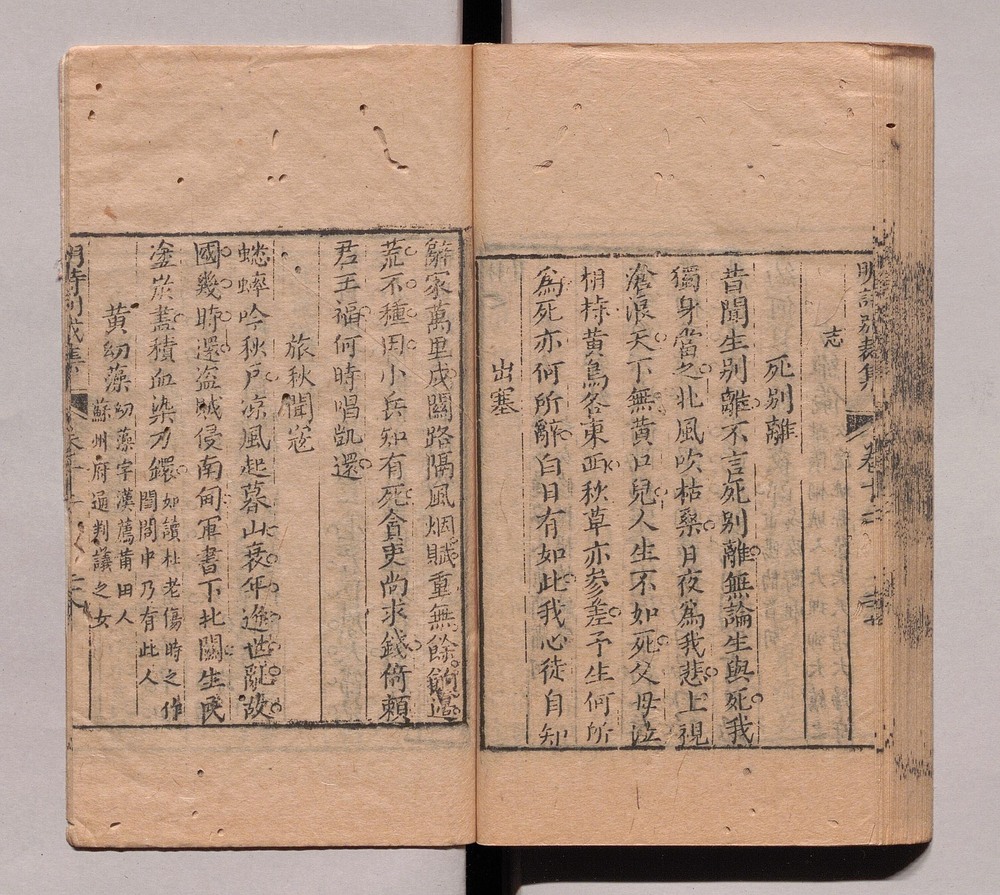 明詩別裁集 卷十二
志
死別離
昔聞生別離不言死別離無論生與死我
獨身當之北風吹枯桑日夜為我悲上視
滄浪天下無黃口兒人生不如死父母泣
相持黃鳥各東西秋草亦參差予生何所
為死亦何所辭白日有如此我心徒自知
出塞
辭家萬里戍關路隔風烟賦重無餘餉邊
荒不種田小兵知有死貪吏尚求錢倚賴
君王福何時唱凱還
旅秋聞寇
蟋蟀吟秋戶凉風起暮山衰年逢世亂故
國幾時還盜賊侵南甸軍書下北關生民
塗炭盡積血染刀鐶如讀杜老傷時之作閨閤中乃有此人
黃幼藻幼藻字漢薦莆田人蘇州府通判議之女